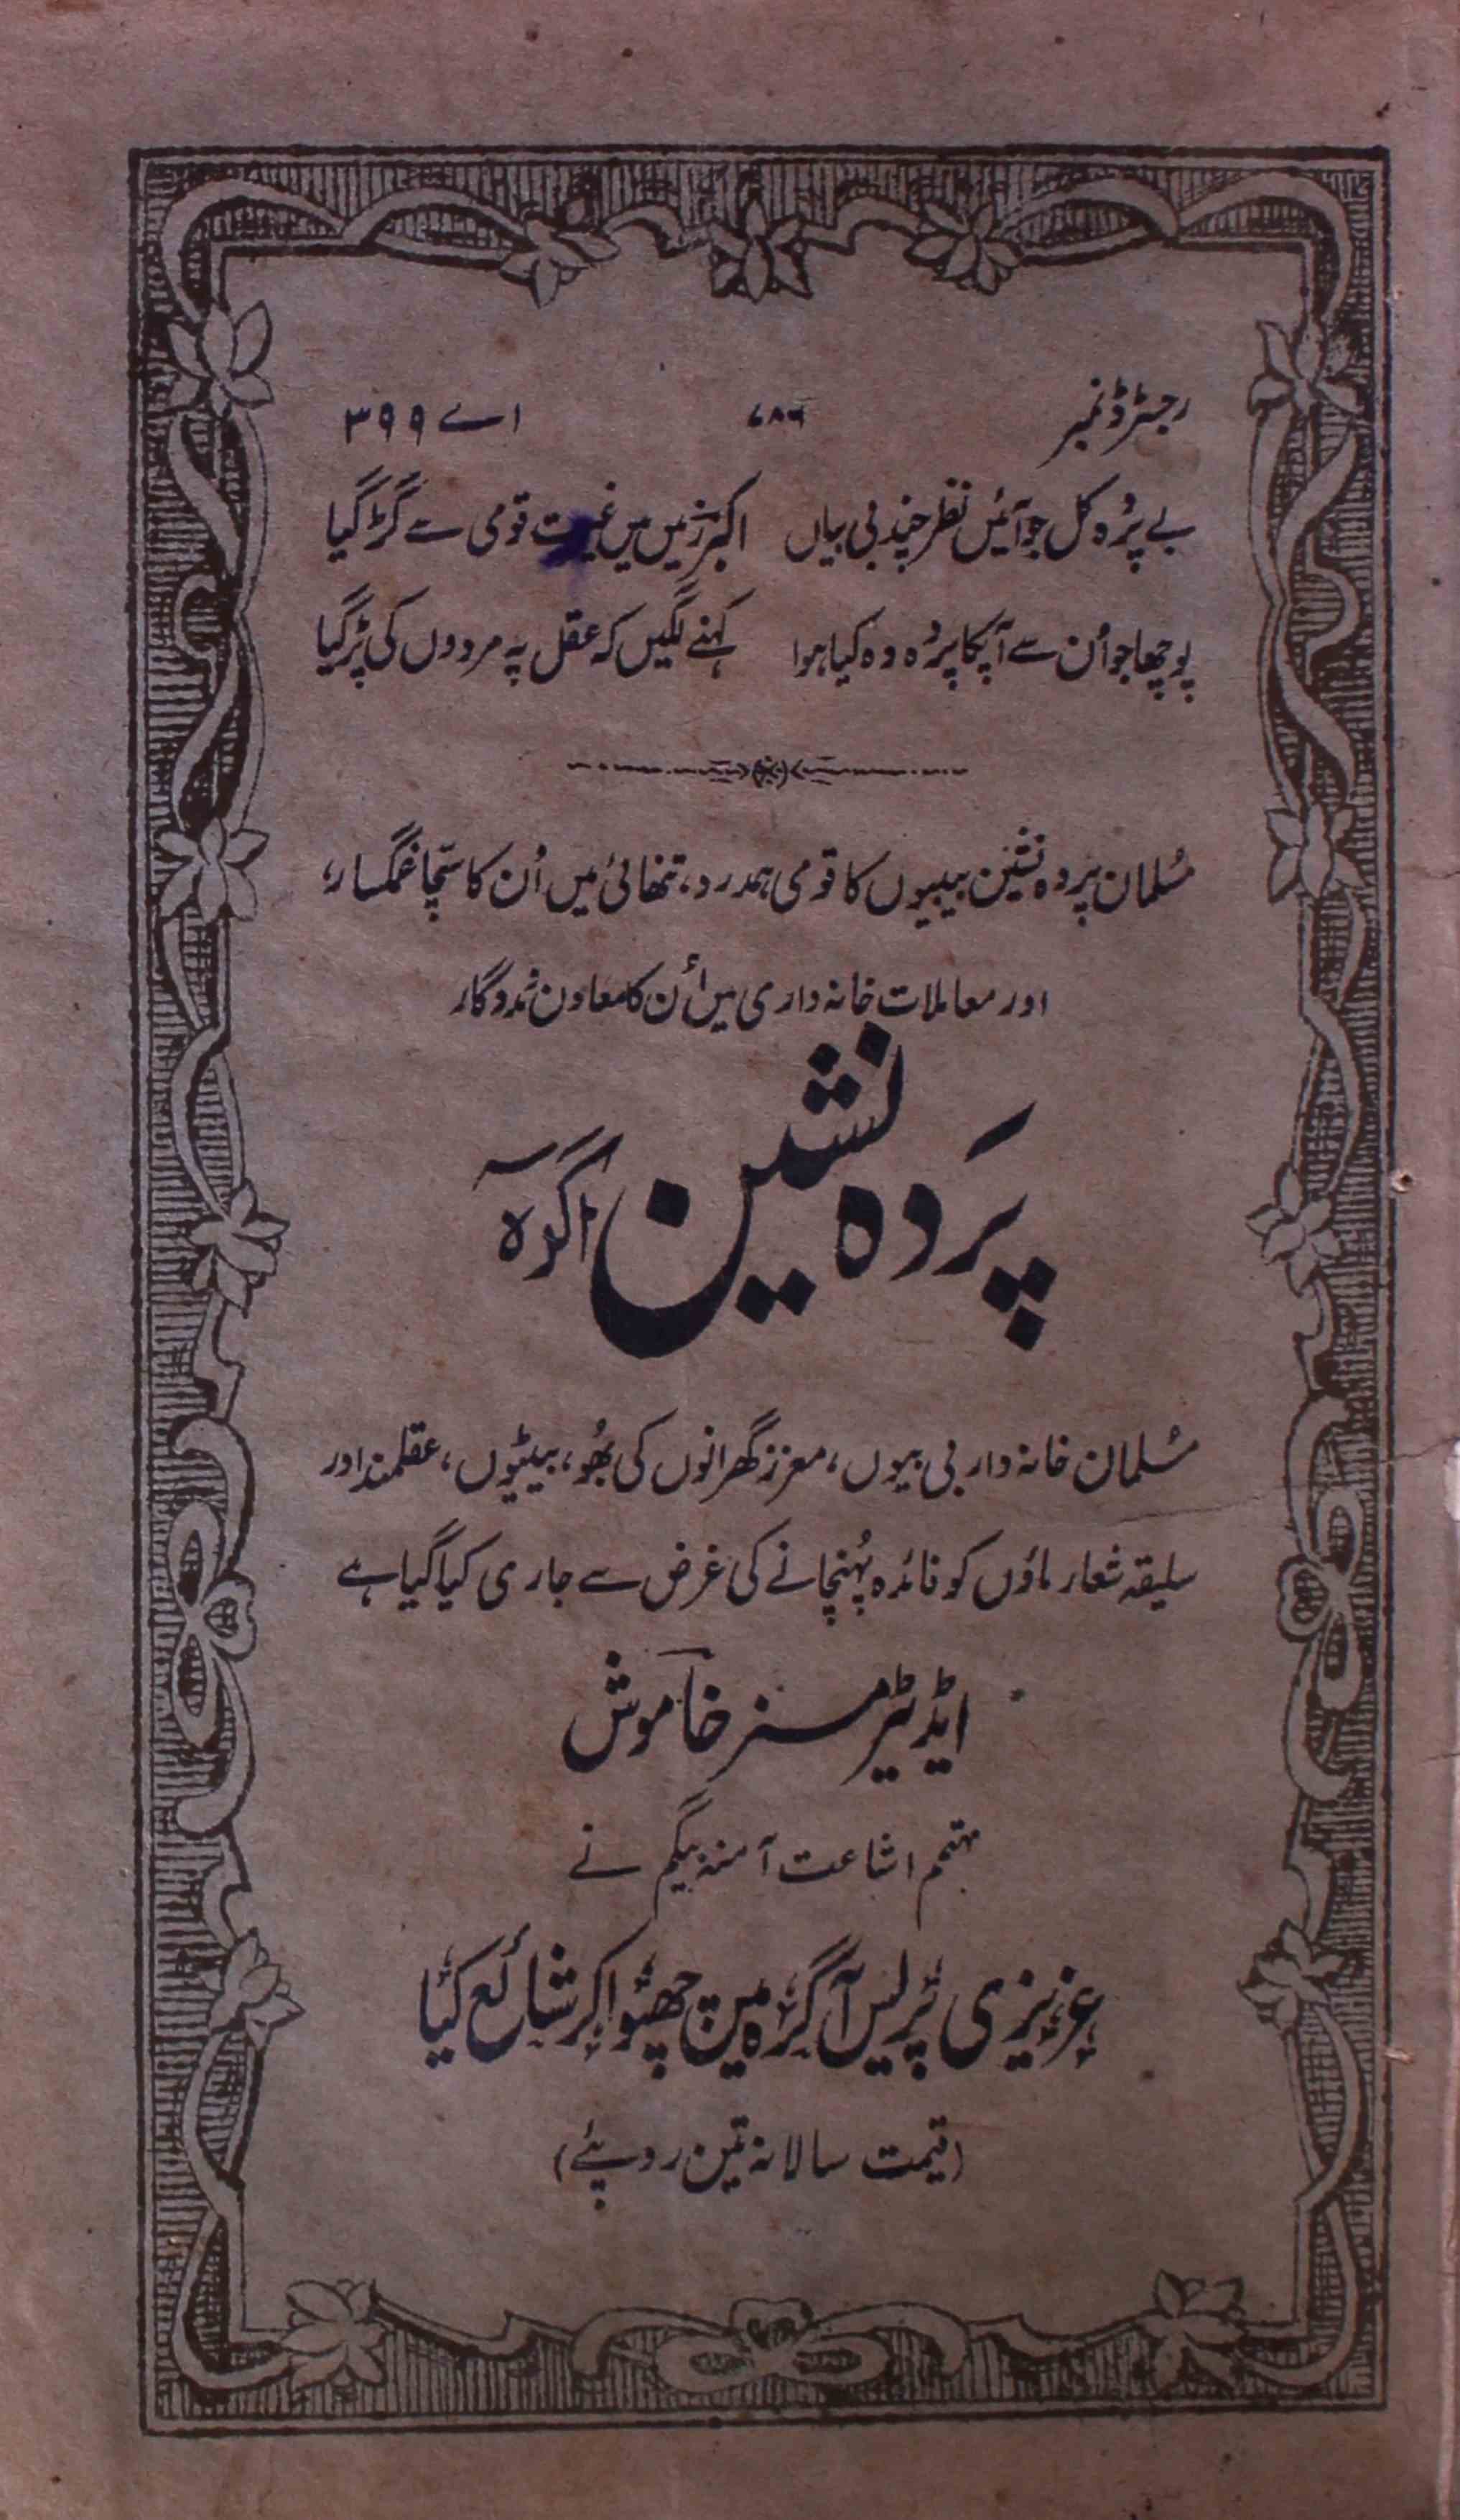 رجسٹرڈ نمبر ۷۸۶ اے ۳۹۹
بے پردہ کل جو آئیں نظر چند بی بیاں اکبر زمیں میں غیرت قومی سے گڑ گیا
پوچھا جو اُن سے آپکا پردہ وہ کیا ہوا کہنے لگیں کہ عقل پہ مردوں کی پڑ گیا
مُسلمان پردہ نشین بیبیوں کا قومی ہمدرد، تنھائی میں اُن کا سچّا غمگسار،
اور معاملات خانہ داری میں اُن کا معاون مددگار
پردہ نشین آگرہ
مُسلمان خانہ دار بی بیوں، معزز گھرانوں کی بھُو، بیٹیوں، عقلمند اور
سلیقہ شعار ماؤں کو فائدہ پہُنچانے کی غرض سے جاری کیا گیا ہے
ایڈیٹر مسز خاموش
مہتمم اشاعت آمنہ بیگم نے
عزیزی پریس آگرہ میں چھپوا کر شائع کیا
(قیمت سالانہ تین روپئے)